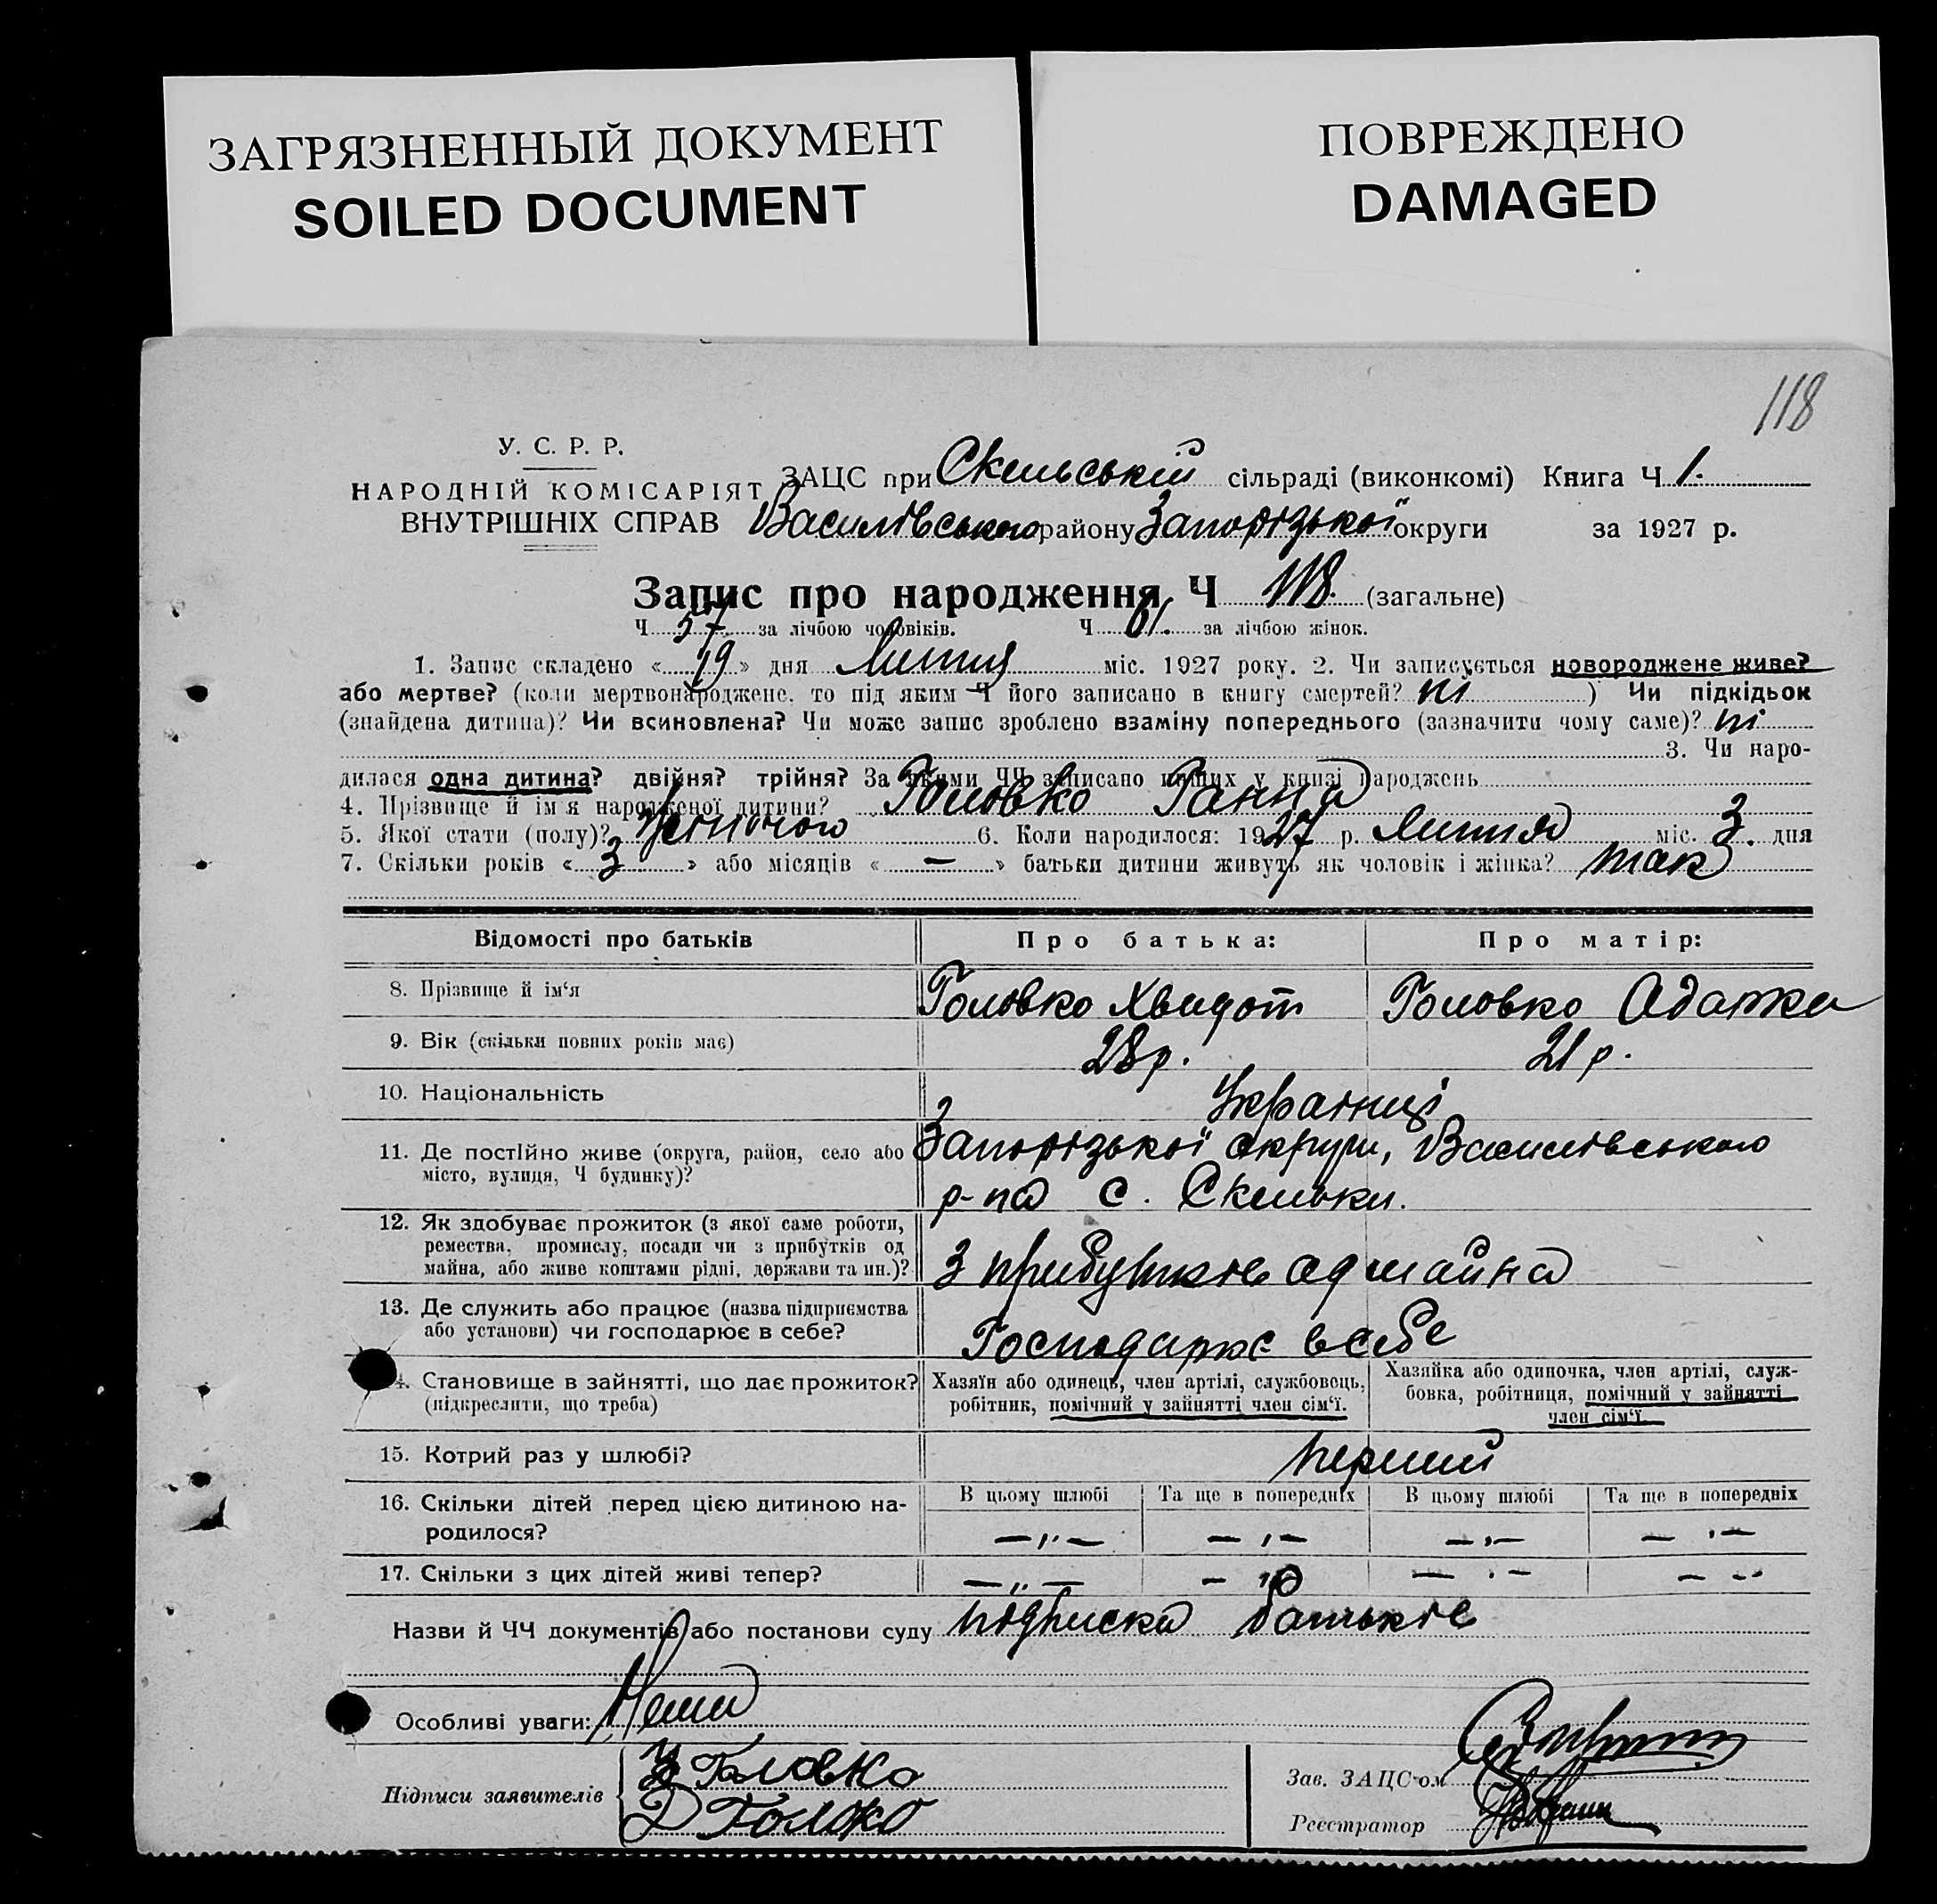 ЗАГРЯЗНЕННЫЙ ДОКУМЕНТ
SOILED DOCUMENT
ПОВРЕЖДЕНО
DAMAGED
118
У. С. Р. Р.
НАРОДНІЙ КОМІСАРІЯТ
ВНУТРІШНІХ СПРАВ
ЗАЦС при Скельській сільраді (виконкомі) Книга Ч 1.
Василівського району Запорізької округи за 1927 р.
Запис про народження Ч 118. (загальне)
Ч 57 за лічбою чоловіків. Ч 61. за лічбою жінок.
1. Запис складено « 19 » дня Липня міс. 1927 року. 2. Чи записується новороджене живе?
або мертве? (коли мертвонароджене, то під яким Ч його записано в книгу смертей? ні ) Чи підкідьок
(знайдена дитина)? Чи всиновлена? Чи може запис зроблено взаміну попереднього (зазначити чому саме)? ні
3. Чи наро-
дилася одна дитина? двійня? трійня? За якими ЧЧ записано инших у книзі народжень
4. Прізвище й ім'я народженої дитини? Головко Ганна
5. Якої стати (полу)? жіночої 6. Коли народилося: 1927 р. Липня міс. 3. дня
7. Скільки років « 3 » або місяців « — » батьки дитини живуть як чоловік і жінка? так
Відомості про батьків Про батька: Про матір:
8. Прізвище й ім'я Головко Хвидот Головко Одарка
9. Вік (скільки повних років має) 28 р. 21 р.
10. Національність Українці
11. Де постійно живе (округа, район, село або місто, вулиця, Ч будинку)? Запорізької округи, Василівського
р-на с. Скельки.
12. Як здобуває прожиток (з якої саме роботи,
ремества, промислу, посади чи з прибутків од
майна, або живе коштами рідні, держави та ин.)? З прибутків од майна
13. Де служить або працює (назва підприємства
або установи) чи господарює в себе? Господарює в себе
4. Становище в зайнятті, що дає прожиток?
(підкреслити, що треба)
Хазяїн або одинець, член артілі, службовець,
робітник, помічний у зайнятті член сім'ї.
Хазяйка або одиночка, член артілі, служ-
бовка, робітниця, помічний у зайнятті
член сім'ї.
15. Котрий раз у шлюбі? перший
16. Скільки дітей перед цією дитиною на-
родилося?
В цьому шлюбі Та ще в попередніх В цьому шлюбі Та ще в попередніх
— „ — — „ — — „ — — „ —
17. Скільки з цих дітей живі тепер? — „ — — „ — — „ — — „ —
Назви й ЧЧ документів або постанови суду підписка батьків
Особливі уваги: Нема
Підписи заявителів Х Головко
Головко
Зав. ЗАЦС-ом
Реєстратор